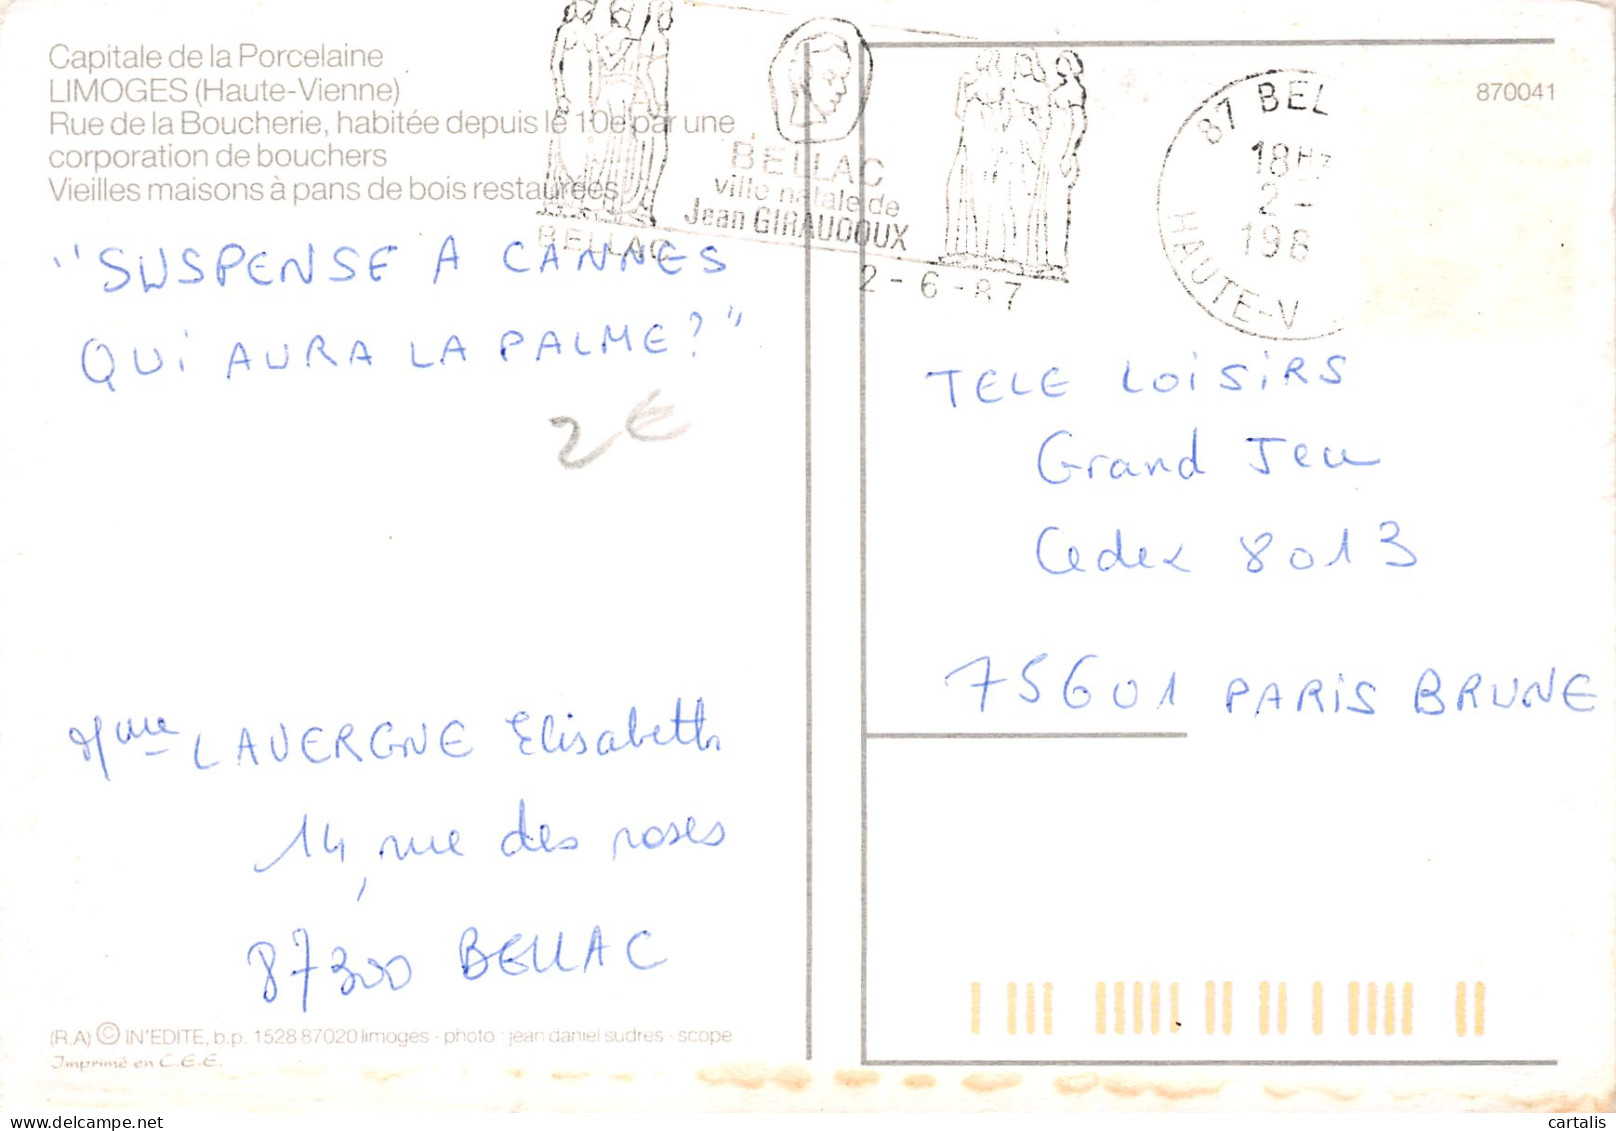 Capitale de la Porcelaine
LIMOGES (Haute-Vienne)
Rue de la Boucherie, habitée depuis le 10e par une
corporation de bouchers
Vieilles maisons à pans de bois restaurées
BELLAC
BELLAC
ville natale de
Jean GIRAUDOUX
2-6-87
87 BEL
18H
2 -
198
HAUTE-V
870041
"SUSPENSE A CANNES
QUI AURA LA PALME?"
2€
TELE LOISIRS
Grand Jeu
Cedex 8013
75601 PARIS BRUNE
Mme LAVERGNE Elisabeth
14, rue des roses
87300 BELLAC
(R.A) © IN'EDITE, b.p. 1528 87020 limoges - photo : jean daniel sudres - scope
Imprimé en C.E.E.
www.delcampe.net
cartalis